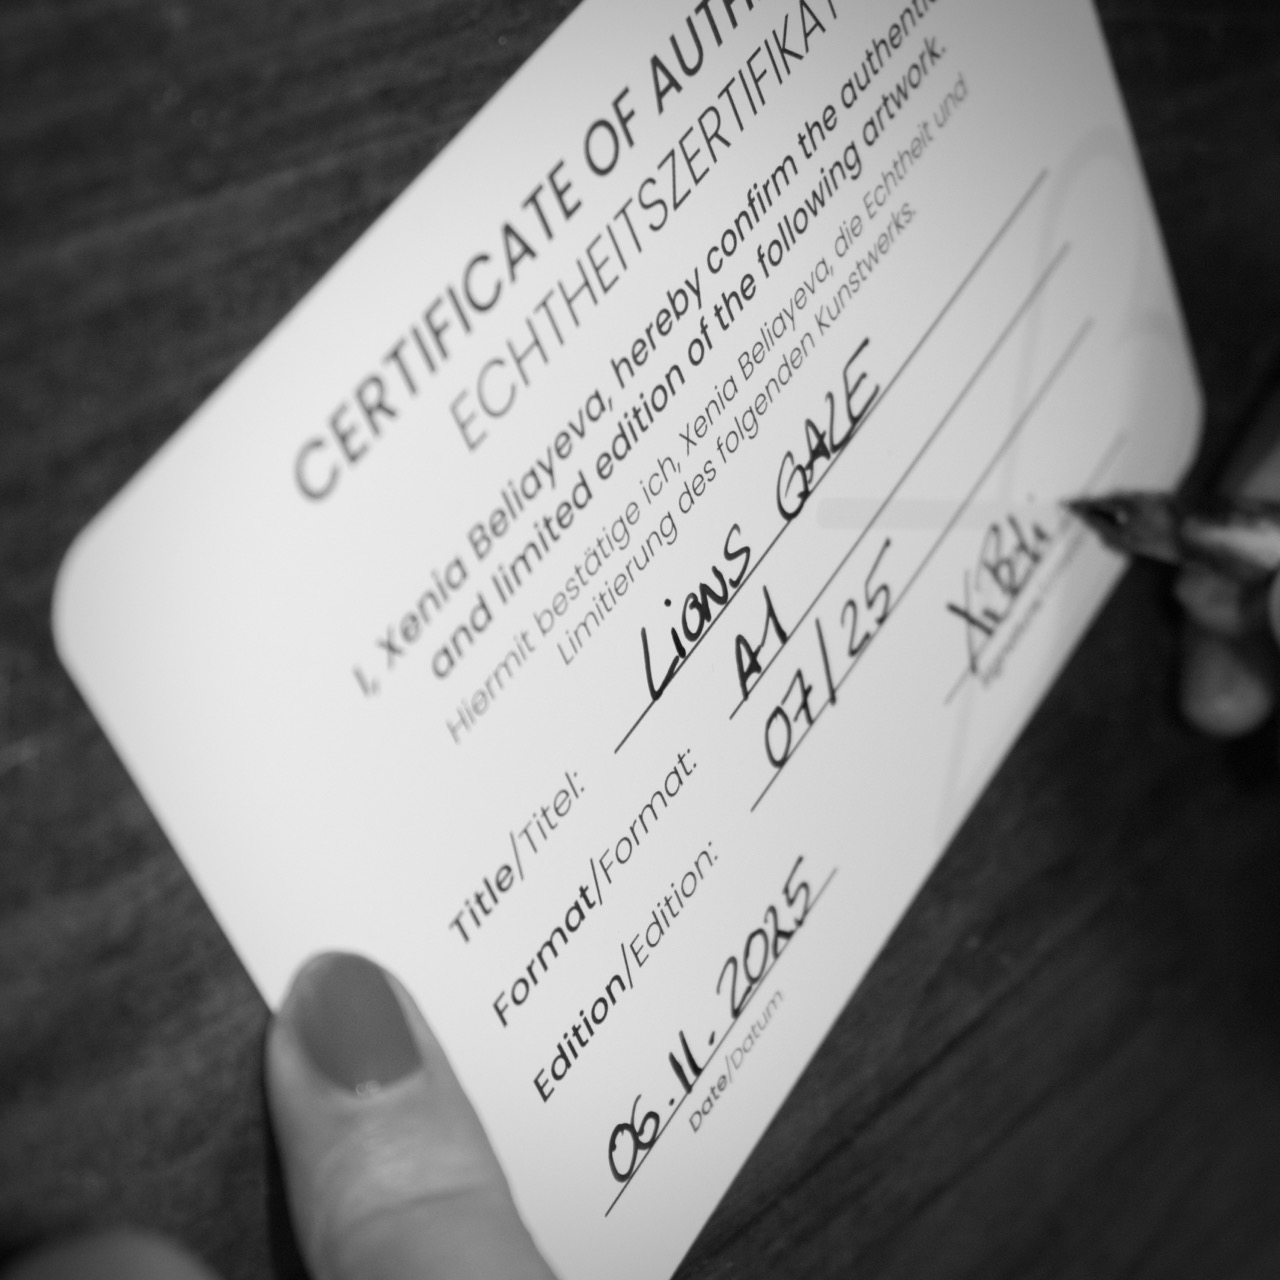 CERTIFICATE OF
ECHTHEITSZERTIFIKAT
I, Xenia Beliayeva, hereby confirm the
and limited edition of the following artwork.
Hiermit bestätige ich, Xenia Beliayeva, die Echtheit und
Limitierung des folgenden Kunstwerks.
Title/Titel: LIONS GAZE
Format/Format: A1
Edition/Edition: 07/25
06.11.2025
Date/Datum